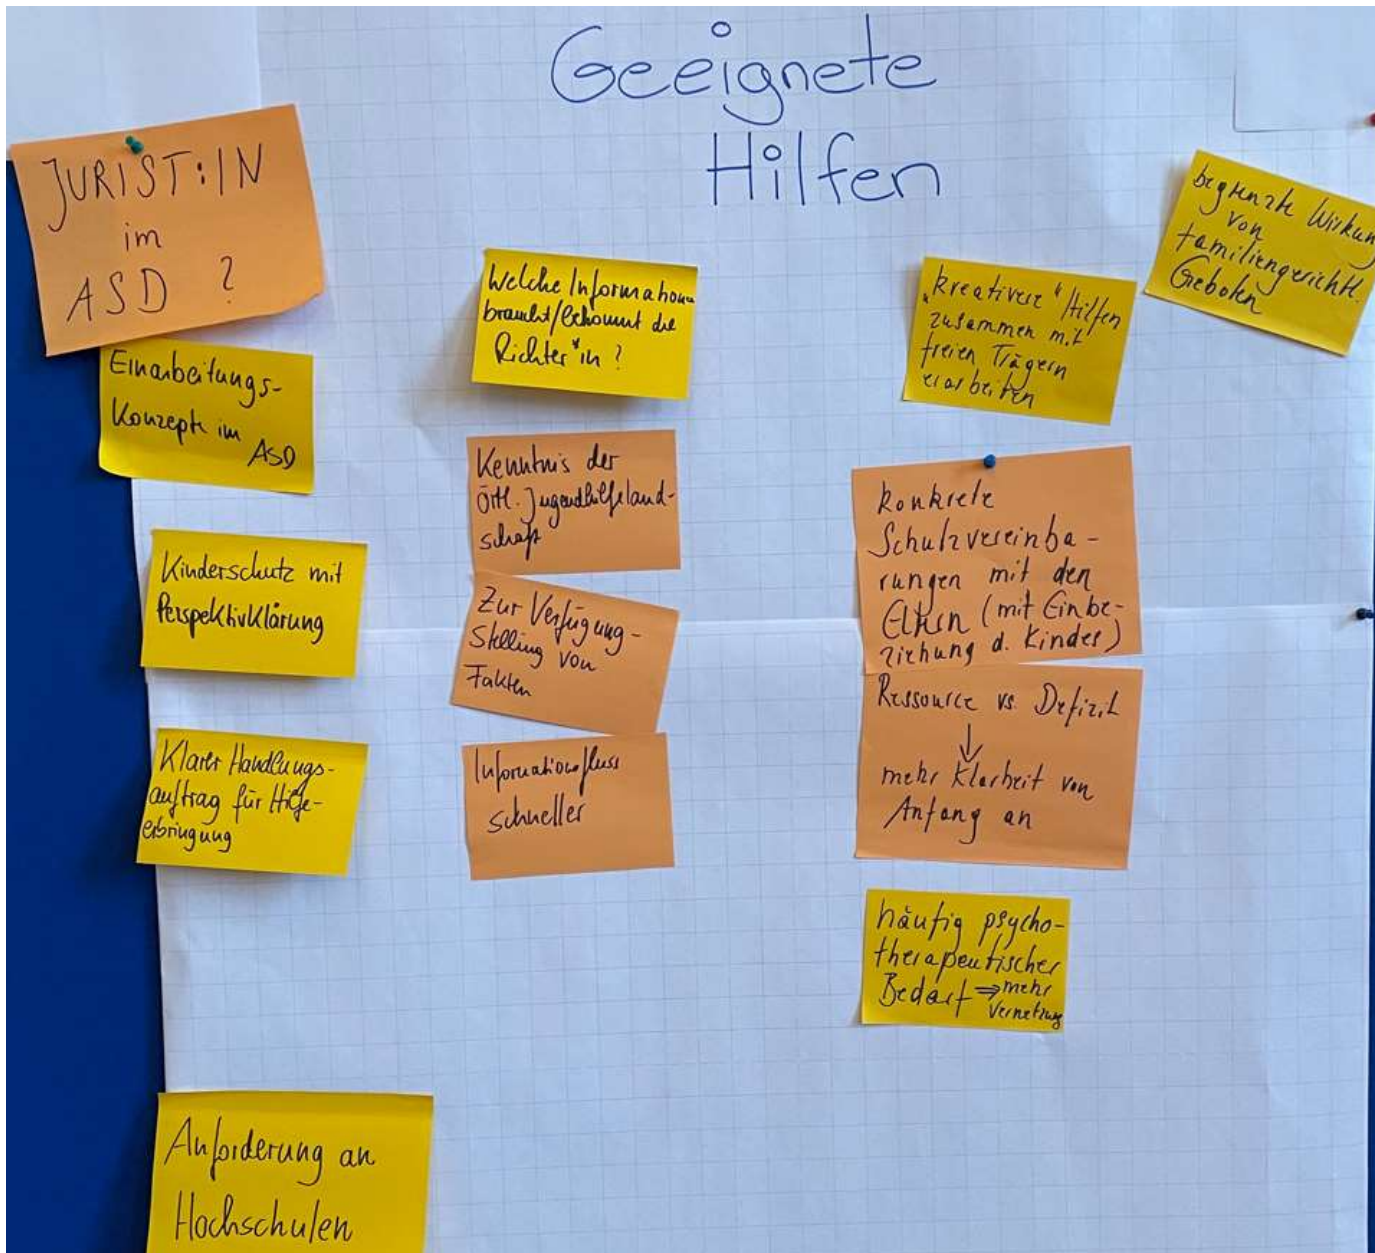 Geeignete
Hilfen
JURIST:IN
im
ASD ?
Einarbeitungs-
Konzepte im
ASD
Kinderschutz mit
Perspektivklärung
Klarer Handlungs-
auftrag für Hilfe-
erbringung
Anforderung an
Hochschulen
Welche Informationen
braucht/bekommt die
Richter*in ?
Kenntnis der
Örtl. Jugendhilfeland-
schaft
Zur Verfügung-
Stellung von
Fakten
Informationsfluss
schneller
"kreativere" Hilfen
zusammen mit
freien Trägern
erarbeiten
konkrete
Schutzvereinba-
rungen mit den
Eltern (mit Einbe-
ziehung d. Kindes)
Ressource vs. Defizit
↓
mehr Klarheit von
Anfang an
häufig psycho-
therapeutischer
Bedarf ⇒ mehr
Vernetzung
begrenzte Wirkun
von
familiengerichtl.
Geboten